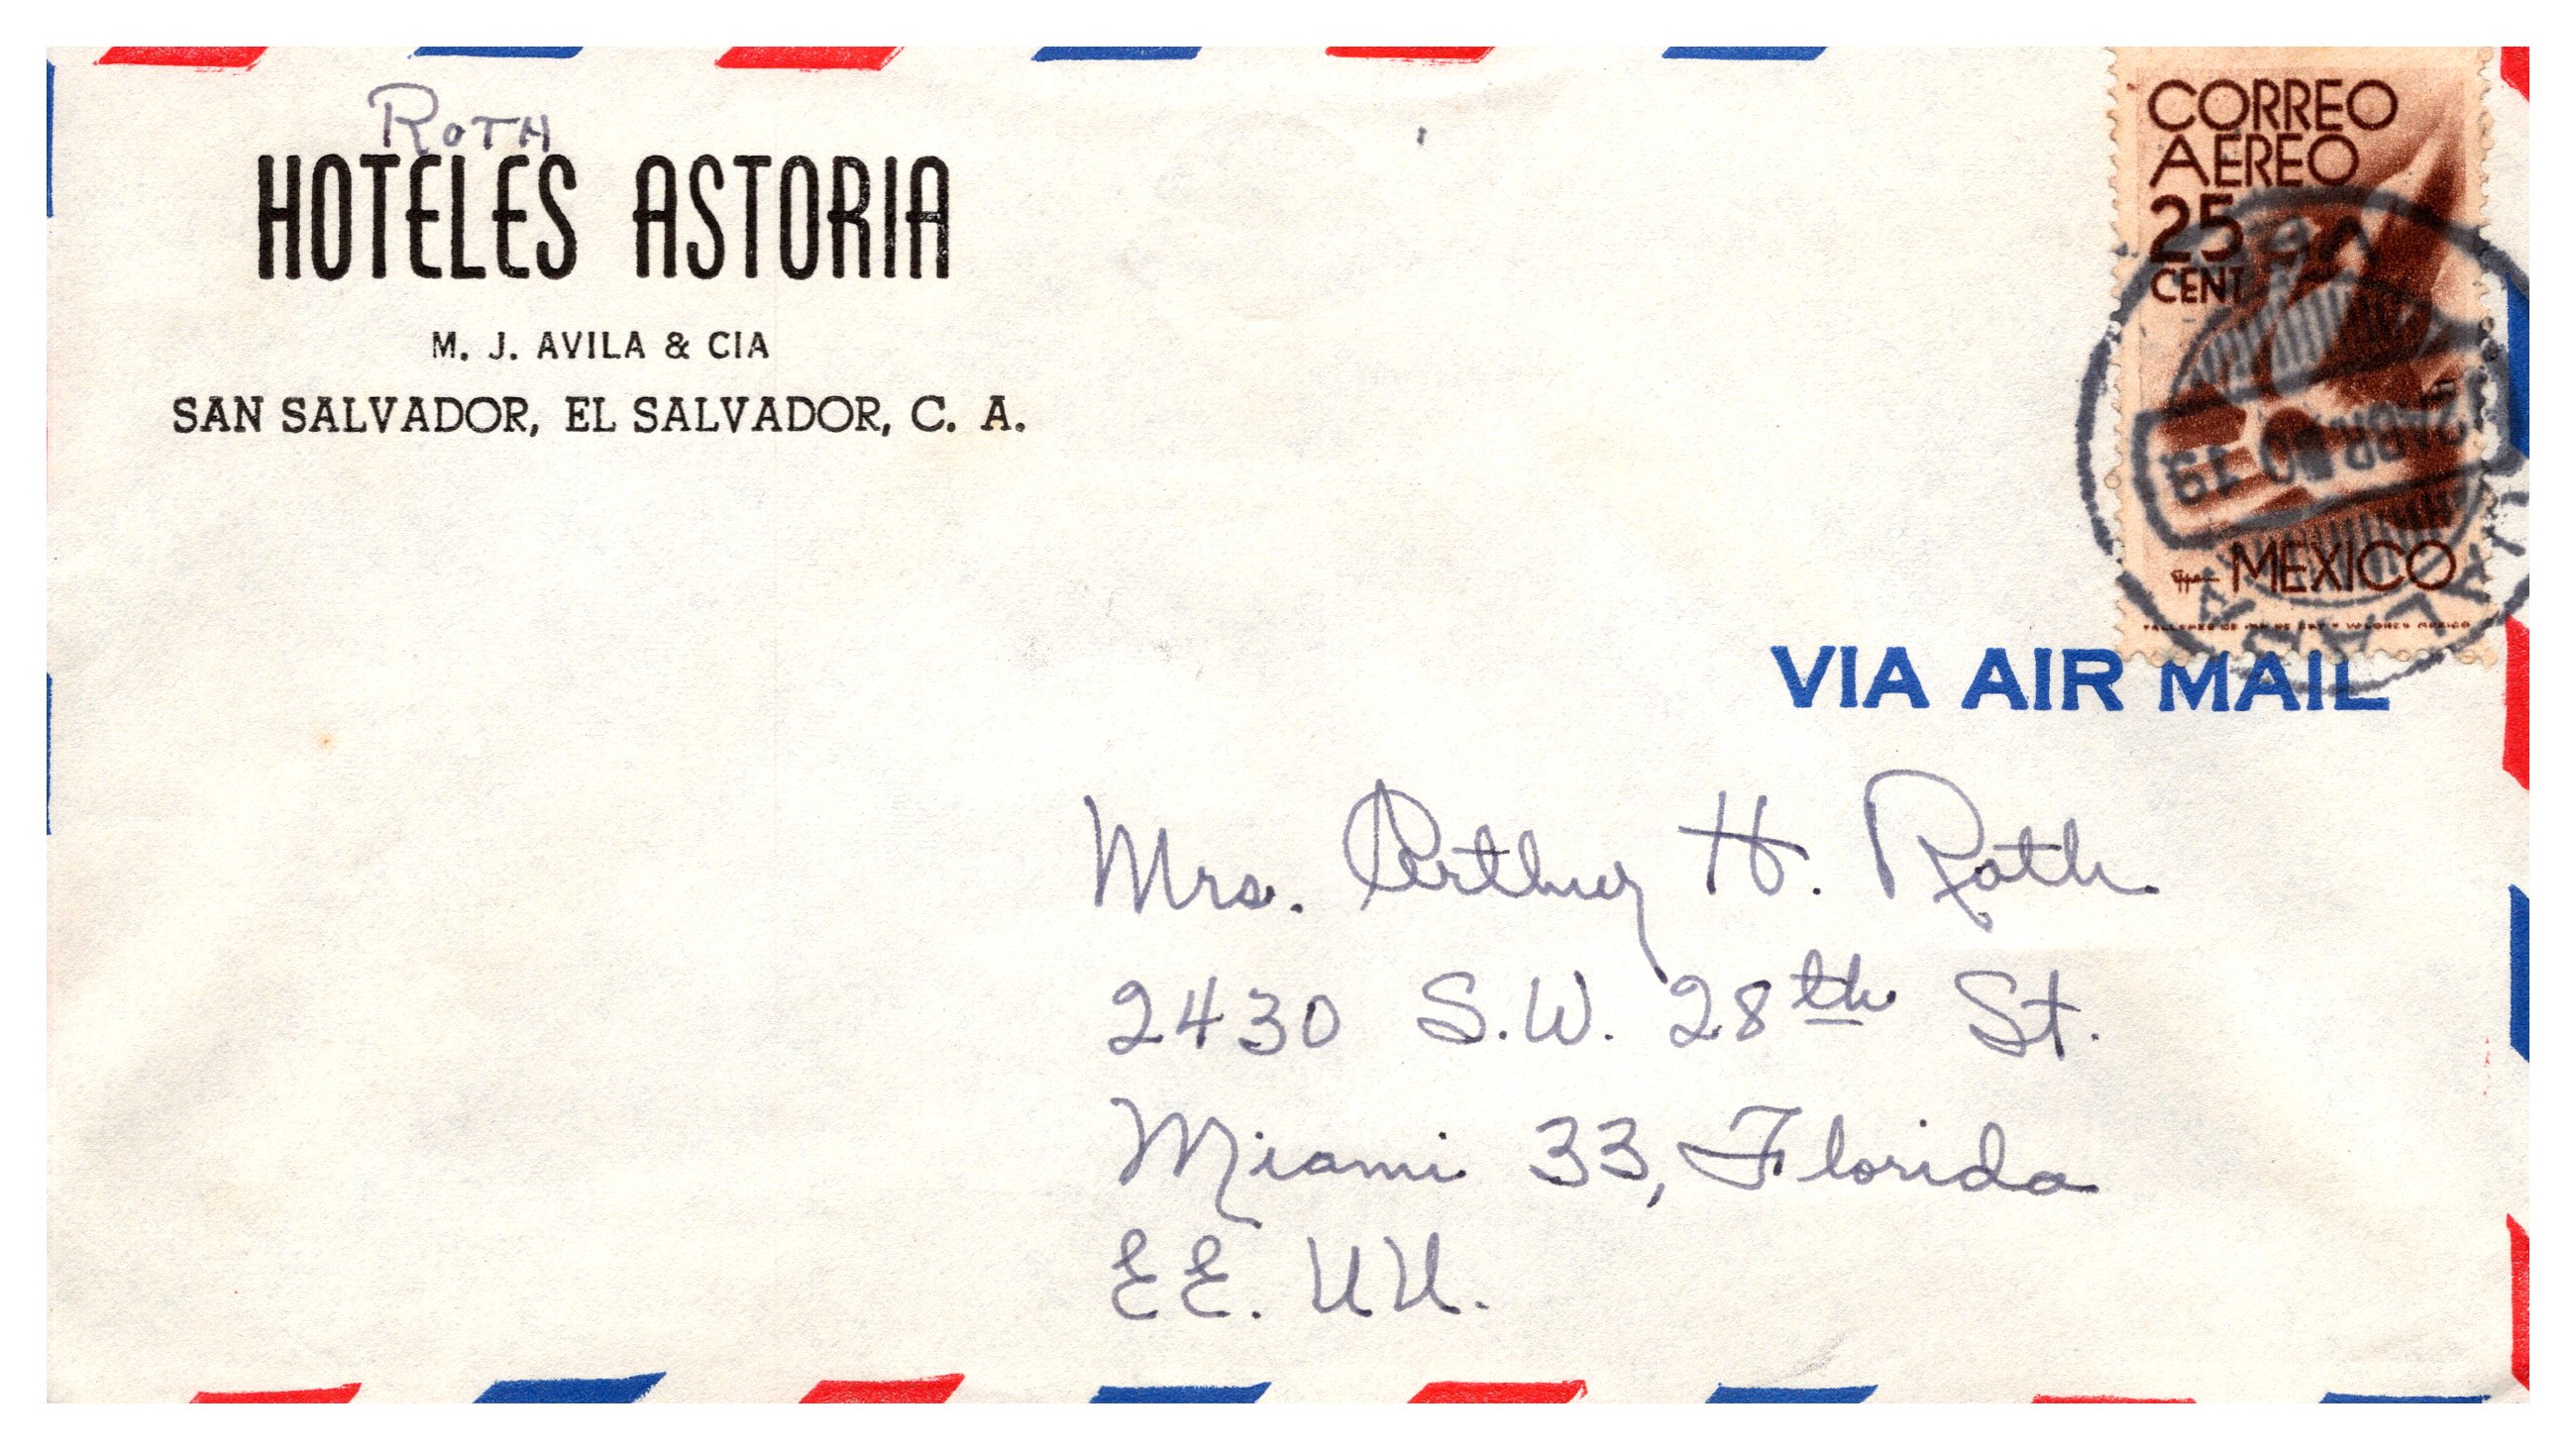 Roth
HOTELES ASTORIA
M. J. AVILA & CIA
SAN SALVADOR, EL SALVADOR, C. A.
CORREO
AEREO
25
CENT
MEXICO
VIA AIR MAIL
Mrs. Arthur H. Roth
2430 S.W. 28th St.
Miami 33, Florida
EE. UU.